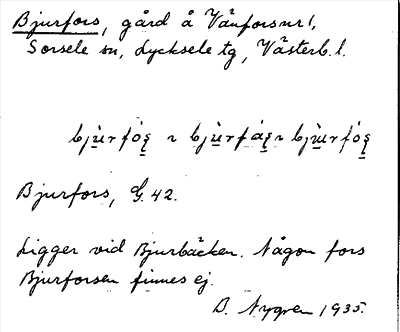 Bjurfors, gård å Vänforsnr 1,
Sorsele sn, Lycksele tg, Västerb. l.
Bjurfors, G. 42.
Ligger vid Bjurbäcken. Någon fors
Bjurforsen finnes ej.
D. Nygren 1935.